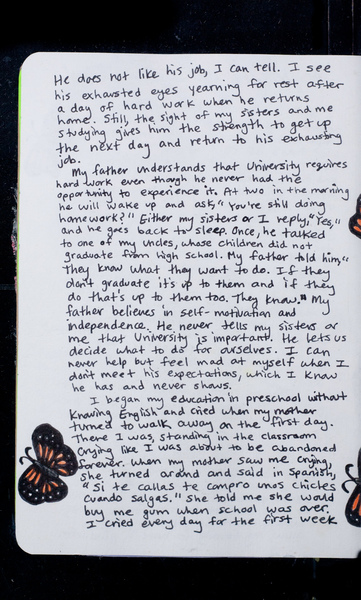 He does not like his job, I can tell. I see
his exhausted eyes yearning for rest after
a day of hard work when he returns
home. Still, the sight of my sisters and me
studying gives him the strength to get up
the next day and return to his exhausting
job.
My father understands that University requires
hard work even though he never had the
opportunity to experience it. At two in the morning
he will wake up and ask, "You're still doing
homework?" Either my sisters or I reply, "Yes,"
and he goes back to sleep. Once, he talked
to one of my uncles, whose children did not
graduate from high school. My father told him, "
They know what they want to do. If they
don't graduate it's up to them and if they
do that's up to them too. They know." My
father believes in self-motivation and
independence. He never tells my sisters or
me that University is important. He lets us
decide what to do for ourselves. I can
never help but feel mad at myself when I
don't meet his expectations, which I know
he has and never shows.
I began my education in preschool without
knowing English and cried when my mother
turned to walk away on the first day.
There I was, standing in the classroom
crying like I was about to be abandoned
forever. When my mother saw me crying,
she turned around and said in Spanish,
"Si te callas te compro unos chicles
Cuando salgas." She told me she would
buy me gum when school was over.
I cried every day for the first week